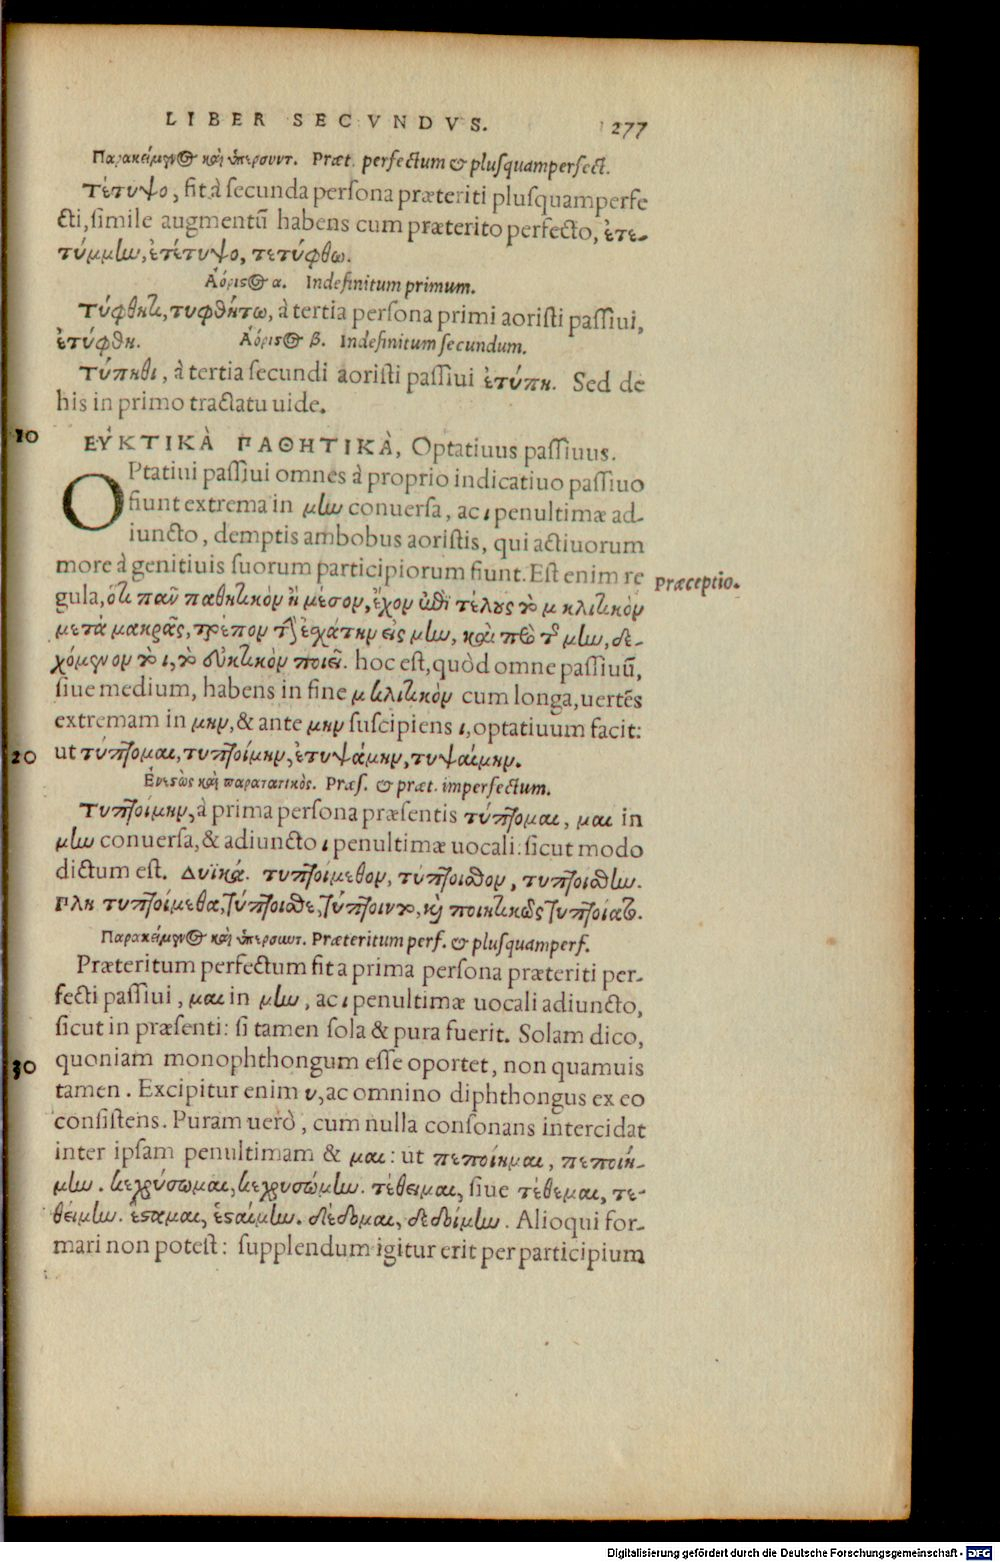 LIBER SECVNDVS. 277
Παρακείμενος καὶ ὑπερσυντ. Præt. perfectum & plusquamperfect.
Τέτυψο, fit à secunda persona præteriti plusquamperfe
cti, simile augmentū habens cum præterito perfecto, ἐτε-
τύμμην, ἐτέτυψο, τετύφθω.
Ἀόριστος α. Indefinitum primum.
Τύφθητι, τυφθήτω, à tertia persona primi aoristi passiui,
ἐτύφθη. Ἀόριστος β. Indefinitum secundum.
Τύπηθι, à tertia secundi aoristi passiui ἐτύπη. Sed de
his in primo tractatu uide.
10
ΕΥ̓ΚΤΙΚᾺ ΠΑΘΗΤΙΚᾺ, Optatiuus passiuus.
OPtatiui passiui omnes à proprio indicatiuo passiuo
fiunt extrema in μην conuersa, ac ι penultimæ ad-
iuncto, demptis ambobus aoristis, qui actiuorum
more à genitiuis suorum participiorum fiunt. Est enim re
Præceptio.
gula, ὅτι πᾶν παθητικὸν ἢ μέσον, ἔχον ἐπὶ τέλους τὸ μ κλιτικὸν
μετὰ μακρᾶς, τρέπον τὴν ἐσχάτην εἰς μην, καὶ πρὸ τοῦ μην, δε-
χόμενον τὸ ι, τὸ εὐκτικὸν ποιεῖ. hoc est, quòd omne passiuū,
siue medium, habens in fine μ κλιτικὸν cum longa, uertēs
extremam in μην, & ante μην suscipiens ι, optatiuum facit:
20
ut τύπτομαι, τυπτοίμην, ἐτυψάμην, τυψαίμην.
Ἐνεστὼς καὶ παρατατικὸς. Præs. & præt. imperfectum.
Τυπτοίμην, à prima persona præsentis τύπτομαι, μαι in
μην conuersa, & adiuncto ι penultimæ uocali: sicut modo
dictum est. Δυϊκά. τυπτοίμεθον, τύπτοισθον, τυπτοίσθην.
Πλη τυπτοίμεθα, τύπτοισθε, τύπτοιντο, καὶ ποιητικῶς τυπτοίατο.
Παρακείμενος καὶ ὑπερσυντ. Præteritum perf. & plusquamperf.
Præteritum perfectum fit a prima persona præteriti per-
fecti passiui, μαι in μην, ac ι penultimæ uocali adiuncto,
sicut in præsenti: si tamen sola & pura fuerit. Solam dico,
30
quoniam monophthongum esse oportet, non quamuis
tamen. Excipitur enim υ, ac omnino diphthongus ex eo
consistens. Puram uerò, cum nulla consonans intercidat
inter ipsam penultimam & μαι: ut πεποίημαι, πεποιή-
μην. κεχρύσωμαι, κεχρυσῴμην. τέθειμαι, siue τέθεμαι, τε-
θείμην. ἕσταμαι, ἑσταίμην. δέδομαι, δεδοίμην. Alioqui for-
mari non potest: supplendum igitur erit per participium
Digitalisierung gefördert durch die Deutsche Forschungsgemeinschaft - DFG